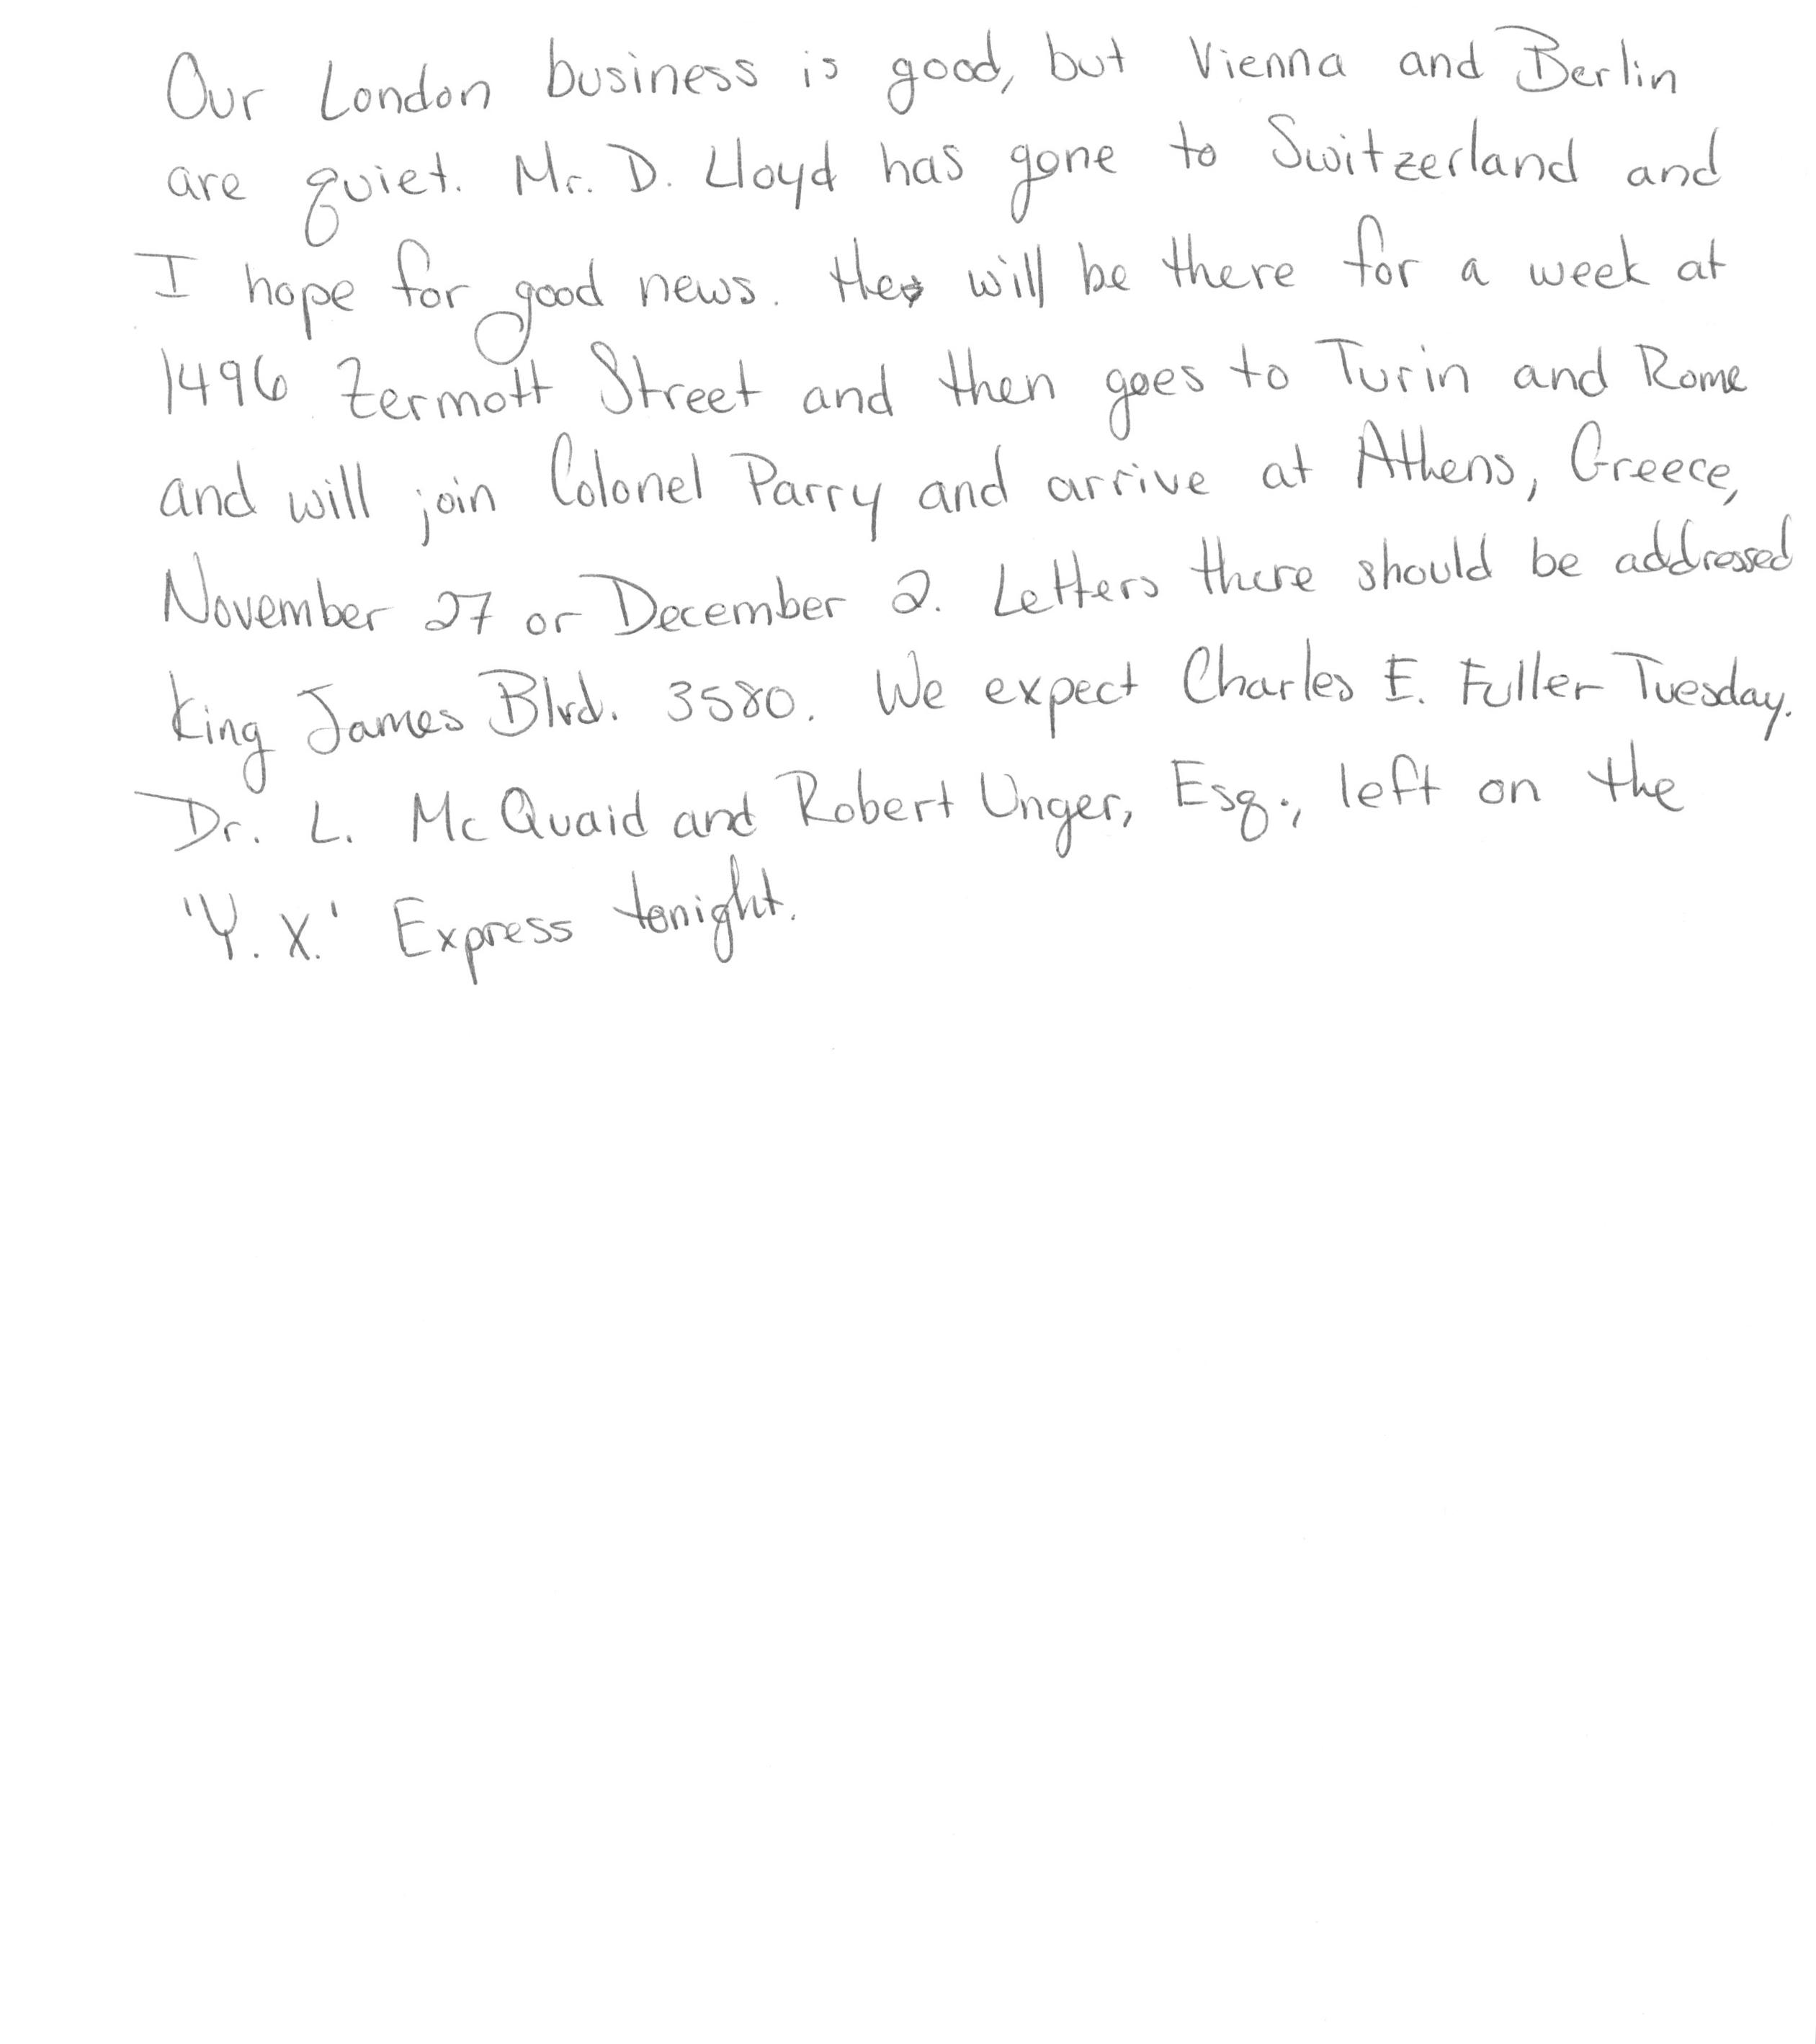 Our London business is good, but Vienna and Berlin
are quiet. Mr. D. Lloyd has gone to Switzerland and
I hope for good news. He will be there for a week at
1496 Zermott Street and then goes to Turin and Rome
and will join Colonel Parry and arrive at Athens, Greece,
November 27 or December 2. Letters there should be addressed
King James Blvd. 3580. We expect Charles E. Fuller Tuesday.
Dr. L. McQuaid and Robert Unger, Esq., left on the
'Y. X.' Express tonight.